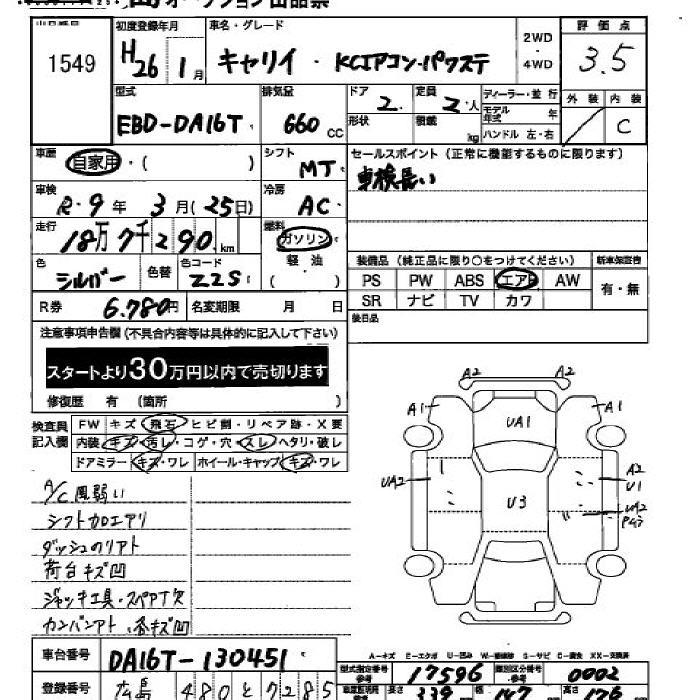 オークション出品票
1549
初度登録年月 H26年 1月
車名・グレード キャリイ・KCエアコン・パワステ
2WD・4WD
評価点 3.5
外装 内装 C
型式 EBD-DA16T
排気量 660 CC
ドア 2
形状
定員 2人
積載 kg
ディーラー・並行
モデル年式 年
ハンドル 左・右
車歴 自家用・( )
シフト MT
セールスポイント (正常に機能するものに限ります)
車検長い
車検 R・9年 3月(25日)
冷房 AC
走行 18万7千290km
燃料 ガソリン 軽油 ( )
色 シルバー 色替 色コード Z2S( )
装備品 (純正品に限り○をつけてください)
新車保証書 有・無
PS PW ABS エアB AW
SR ナビ TV カワ
後日品
R券 6,780円 名変期限 月 日
注意事項申告欄 (不具合内容等は具体的に記入して下さい)
スタートより30万円以内で売切ります
修復歴 有 (箇所 )
検査員記入欄
FW キズ・飛石・ヒビ割・リペア跡・X要
内装・キズ・汚レ・コゲ・穴・スレ・ヘタリ・破レ
ドアミラー・キズ・ワレ ホイール・キャップ・キズ・ワレ
A/C風弱い
シフトカロエアリ
ダッシュのリアト
荷台キズ凹
ジャッキ工具・スペアT欠
カンバンアト、各キズ凹
A2 A2
A1 UA1 A1
UA2 U3 A2
U1
UA2
A-キズ E-エクボ U-凹み W-補修跡 S-サビ C-腐食 XX-交換済
車台番号 DA16T-130451
型式指定番号 17596 類別区分番号 0002
登録番号 広島 480と7285
長さ 339 幅 147